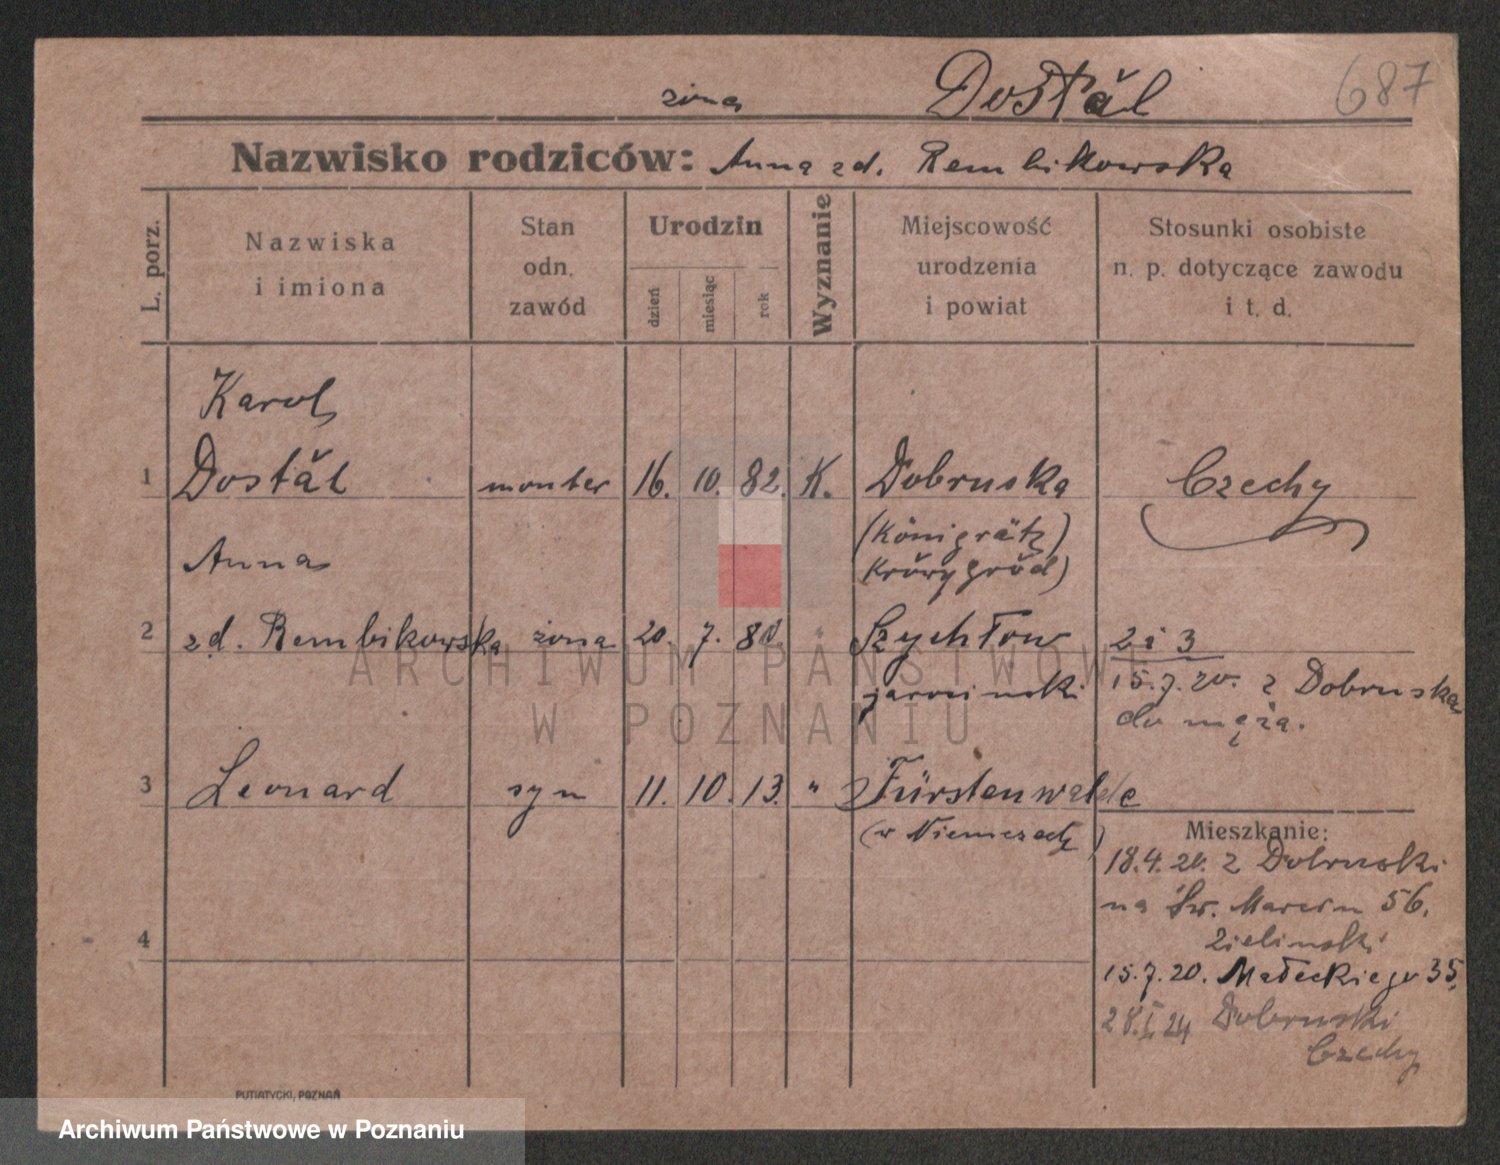 687
żona Dostǎl
Nazwisko rodziców: Anna zd. Rembikowska
L. porz.
Nazwiska
i imiona
Stan
odn.
zawód
Urodzin
dzień
miesiąc
rok
Wyznanie
Miejscowość
urodzenia
i powiat
Stosunki osobiste
n. p. dotyczące zawodu
i t. d.
Karol
1 Dostǎl monter 16. 10. 82. K. Dobruska Czechy
(Königrätz)
Anna
2 zd. Rembikowska żona 20. 7. 80. " Szychłow 2 i 3
jarocinski 15.7.20. z Dobruska
do męża.
3 Leonard syn 11. 10. 13. " Fürstenwalde
(w Niemczech)
Mieszkanie:
18.4.20. z Dobruski
na Św. Marcin 56.
Zielinski
4
15.7.20. Małeckiego 35.
28.I.24 Dobruski
Czechy
PUTIATYCKI, POZNAŃ
ARCHIWUM PAŃSTWOWE
W POZNANIU
Archiwum Państwowe w Poznaniu